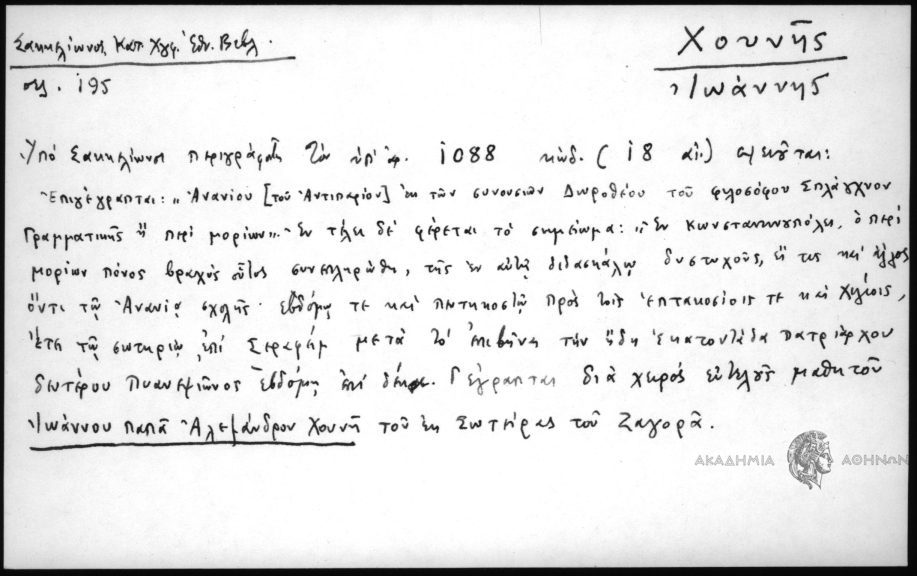 Σακκελίωνος Κατ. Χγφ. Ἐθν. Βιβλ.
σελ. 195
Χουνῆς
Ἰωάννης
Ὑπό Σακκελίωνος περιγράφεται τόν ὑπ' ἀρ. 1088 κώδ. (18 αἰ.)
Ἐπιγέγραπται: "Ἀνανίου [τοῦ Ἀντιπαρίου] ἐκ τῶν συνουσιῶν Δωροθέου τοῦ φιλοσόφου Σπλάγχνον
Γραμματικῆς ἤ περί μορίων". Ἐν τέλει δέ φέρεται τό σημείωμα: "Ἐν Κωνσταντινουπόλει, ὁ περί
μορίων πόνος βραχύς οὗτος συνεπληρώθη, τῆς ἐν αὐτῇ διδασκάλῳ δυστυχοῦς, εἴ τις καί ἄλλος
ὄντι τῷ Ἀνανίᾳ σχολῆς· ἑβδόμῳ τε καί πεντηκοστῷ πρός τοῖς ἑπτακοσίοις τε καί χιλίοις,
ἔτει τῷ σωτηρίῳ ἐπί Σεραφείμ μετά τό ἐπιβῆναι τήν ἤδη ἑκατοντάδα πατριάρχου
δευτέρου Πυανεψιῶνος ἑβδόμῃ ἐπί δέκα. Γέγραπται διά χειρός εὐτελοῦς μαθητοῦ
Ἰωάννου παπᾶ Ἀλεξάνδρου Χουνῆ τοῦ ἐκ Σωτείρας τοῦ Ζαγορᾶ.
ΑΚΑΔΗΜΙΑ ΑΘΗΝΩΝ